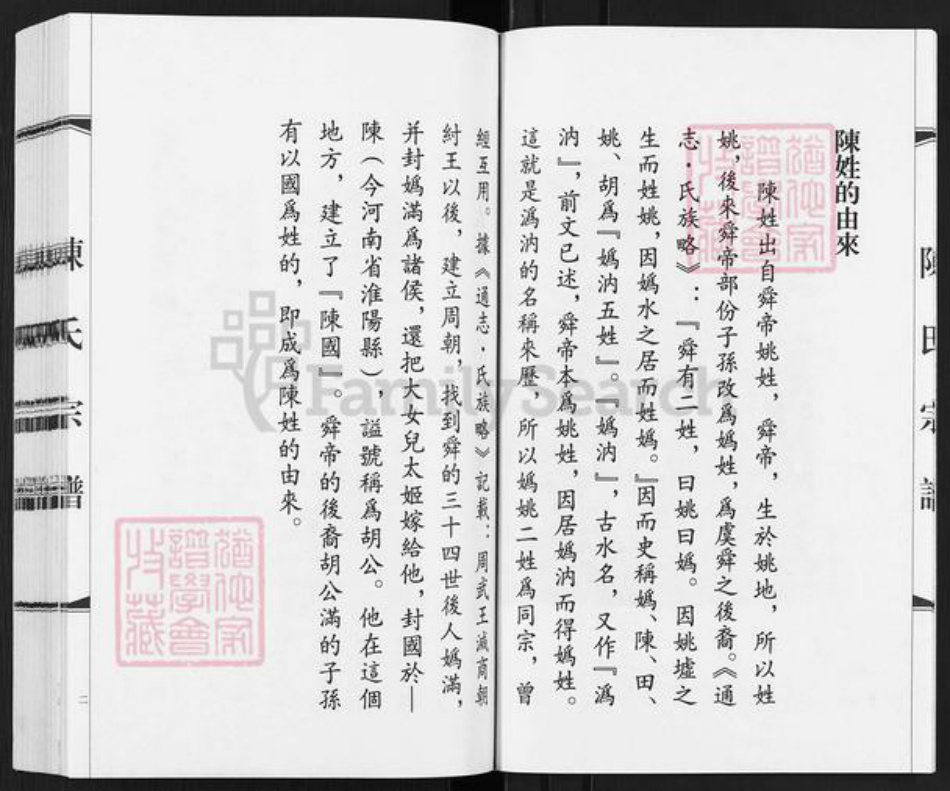 陳姓的由來
陳姓出自舜帝姚姓，舜帝，生於姚地，所以姓
姚，後來舜帝部份子孫改爲嬀姓，爲虞舜之後裔。《通
志·氏族略》：『舜有二姓，曰姚曰嬀。因姚墟之
生而姓姚，因嬀水之居而姓嬀。』因而史稱嬀、陳、田、
姚、胡爲『嬀汭五姓』。『嬀汭』，古水名，又作『潙
汭』，前文已述，舜帝本爲姚姓，因居嬀汭而得嬀姓。
這就是潙汭的名稱來歷，所以嬀姚二姓爲同宗，曾
經互用。據《通志·氏族略》記載：周武王滅商朝
紂王以後，建立周朝，找到舜的三十四世後人嬀滿，
并封嬀滿爲諸侯，還把大女兒太姬嫁給他，封國於—
陳（今河南省淮陽縣），謚號稱爲胡公。他在這個
地方，建立了『陳國』。舜帝的後裔胡公滿的子孫
有以國爲姓的，即成爲陳姓的由來。
陳氏宗譜
二
陳氏宗譜
FamilySearch